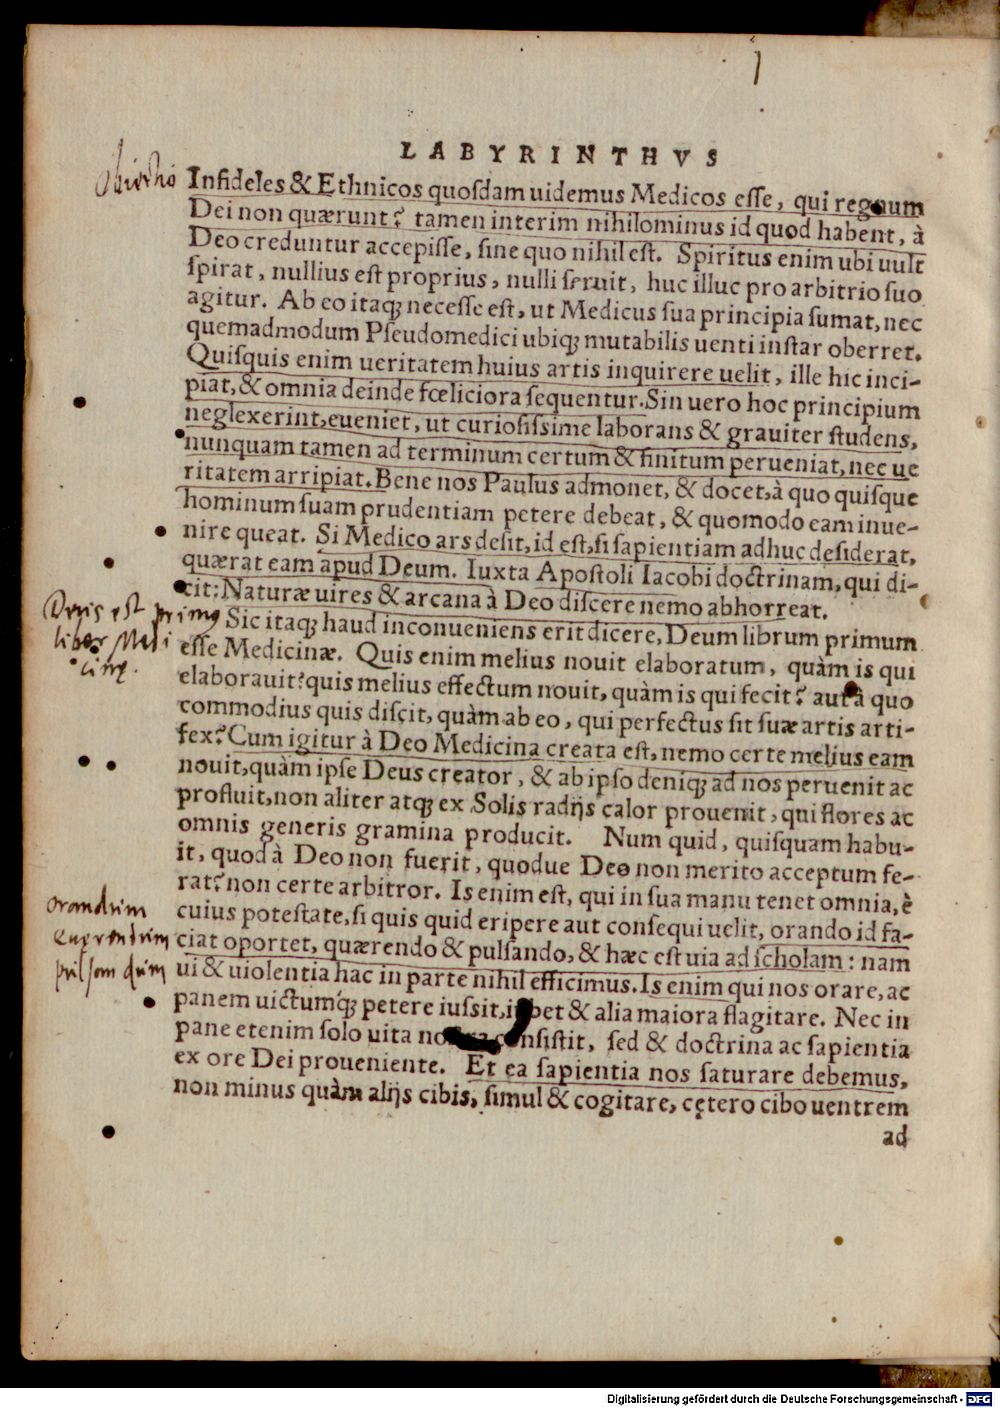 LABYRINTHVS
Obiectio
Infideles & Ethnicos quoſdam uidemus Medicos eſſe, qui regnum
Dei non quærunt? tamen interim nihilominus id quod habent, à
Deo creduntur accepiſſe, ſine quo nihil eſt. Spiritus enim ubi uult
ſpirat, nullius eſt proprius, nulli ſeruit, huc illuc pro arbitrio ſuo
agitur. Ab eo itaq; neceſſe eſt, ut Medicus ſua principia ſumat, nec
quemadmodum Pſeudomedici ubiq; mutabilis uenti inſtar oberret.
Quiſquis enim ueritatem huius artis inquirere uelit, ille hic inci-
piat, & omnia deinde fœliciora ſequentur. Sin uero hoc principium
neglexerint, eueniet, ut curioſiſsime laborans & grauiter ſtudens,
nunquam tamen ad terminum certum & finitum perueniat, nec ue
ritatem arripiat. Bene nos Paulus admonet, & docet, à quo quiſque
hominum ſuam prudentiam petere debeat, & quomodo eam inue-
nire queat. Si Medico ars deſit, id eſt, ſi ſapientiam adhuc deſiderat,
quærat eam apud Deum. Iuxta Apoſtoli Iacobi doctrinam, qui di-
cit: Naturæ uires & arcana à Deo diſcere nemo abhorreat.
Deus est primus
liber Medi
cinę.
Sic itaq; haud inconueniens erit dicere, Deum librum primum
eſſe Medicinæ. Quis enim melius nouit elaboratum, quàm is qui
elaborauit? quis melius effectum nouit, quàm is qui fecit? aut à quo
commodius quis diſcit, quàm ab eo, qui perfectus ſit ſuæ artis arti-
fex? Cum igitur à Deo Medicina creata eſt, nemo certe melius eam
nouit, quàm ipſe Deus creator, & ab ipſo deniq; ad nos peruenit ac
profluit, non aliter atq; ex Solis radijs calor prouenit, qui flores ac
omnis generis gramina producit. Num quid, quiſquam habu-
it, quod à Deo non fuerit, quodue Deo non merito acceptum fe-
rat? non certe arbitror. Is enim eſt, qui in ſua manu tenet omnia, è
orandum
quærendum
pulsandum
cuius poteſtate, ſi quis quid eripere aut conſequi uelit, orando id fa-
ciat oportet, quærendo & pulſando, & hæc eſt uia ad ſcholam: nam
ui & uiolentia hac in parte nihil efficimus. Is enim qui nos orare, ac
panem uictumq́; petere iuſsit, iubet & alia maiora flagitare. Nec in
pane etenim ſolo uita noſtra conſiſtit, ſed & doctrina ac ſapientia
ex ore Dei proueniente. Et ea ſapientia nos ſaturare debemus,
non minus quàm alijs cibis, ſimul & cogitare, cętero cibo uentrem
ad
Digitalisierung gefördert durch die Deutsche Forschungsgemeinschaft - DFG